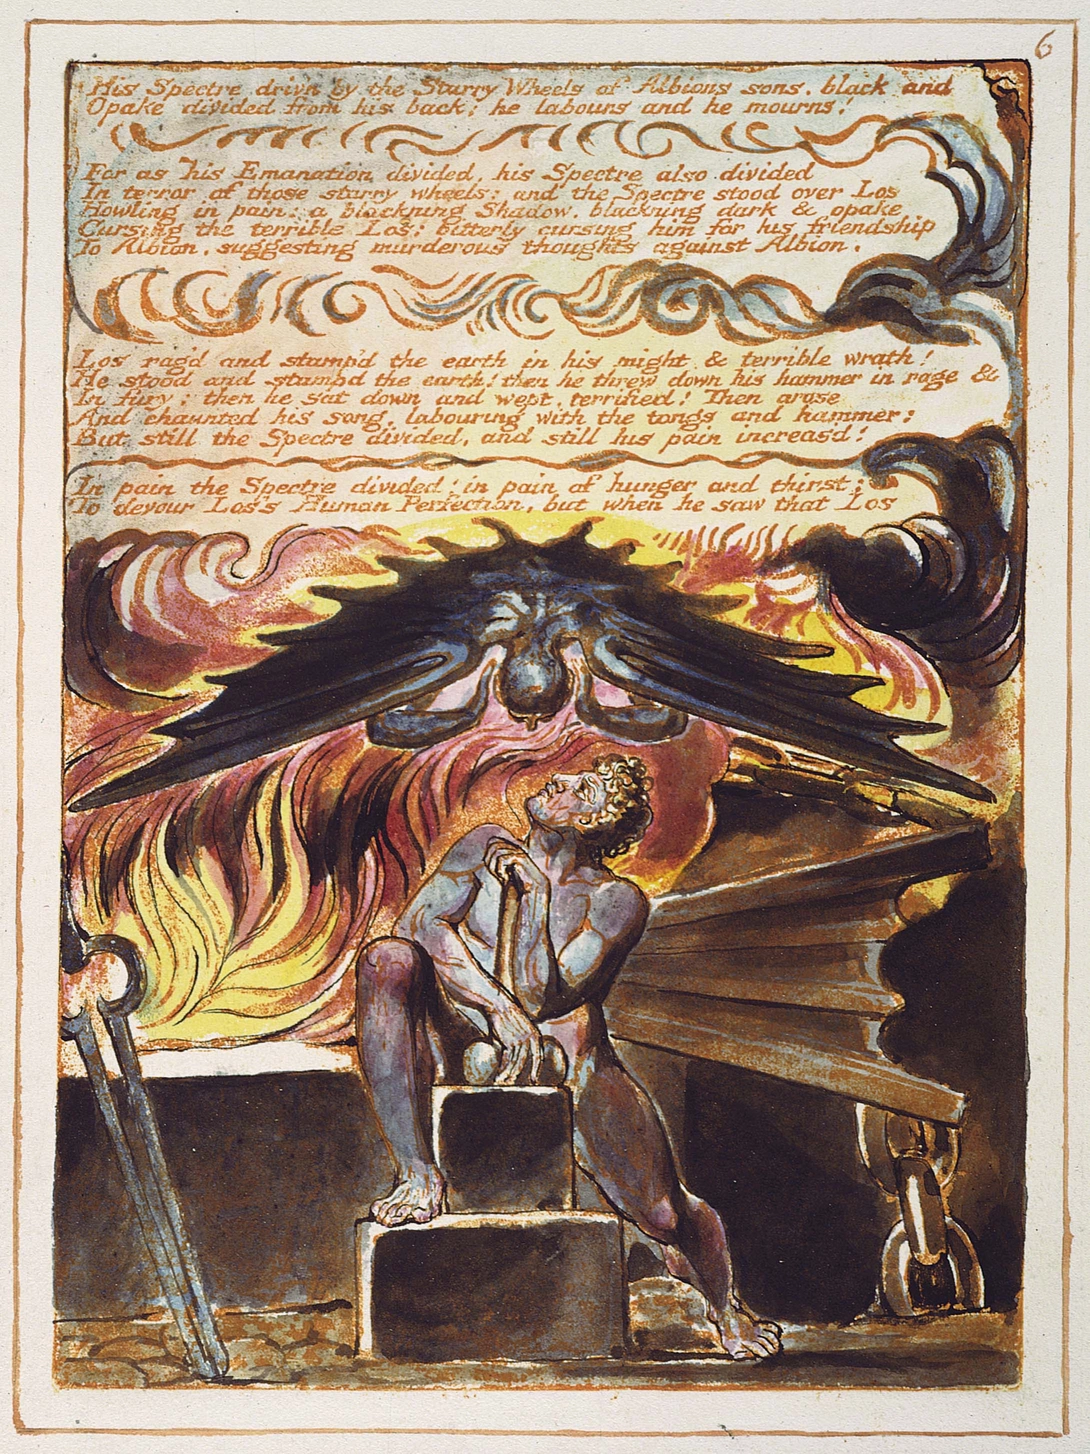 6
His Spectre driv'n by the Starry Wheels of Albions sons, black and
Opake divided from his back; he labours and he mourns!
For as his Emanation divided, his Spectre also divided
In terror of those starry wheels: and the Spectre stood over Los
Howling in pain: a blackning Shadow, blackning dark & opake
Cursing the terrible Los: bitterly cursing him for his friendship
To Albion, suggesting murderous thoughts against Albion.
Los rag'd and stamp'd the earth in his might & terrible wrath!
He stood and stampd the earth! then he threw down his hammer in rage &
In fury: then he sat down and wept, terrified! Then arose
And chaunted his song, labouring with the tongs and hammer:
But still the Spectre divided, and still his pain increas'd!
In pain the Spectre divided: in pain of hunger and thirst:
To devour Los's Human Perfection, but when he saw that Los